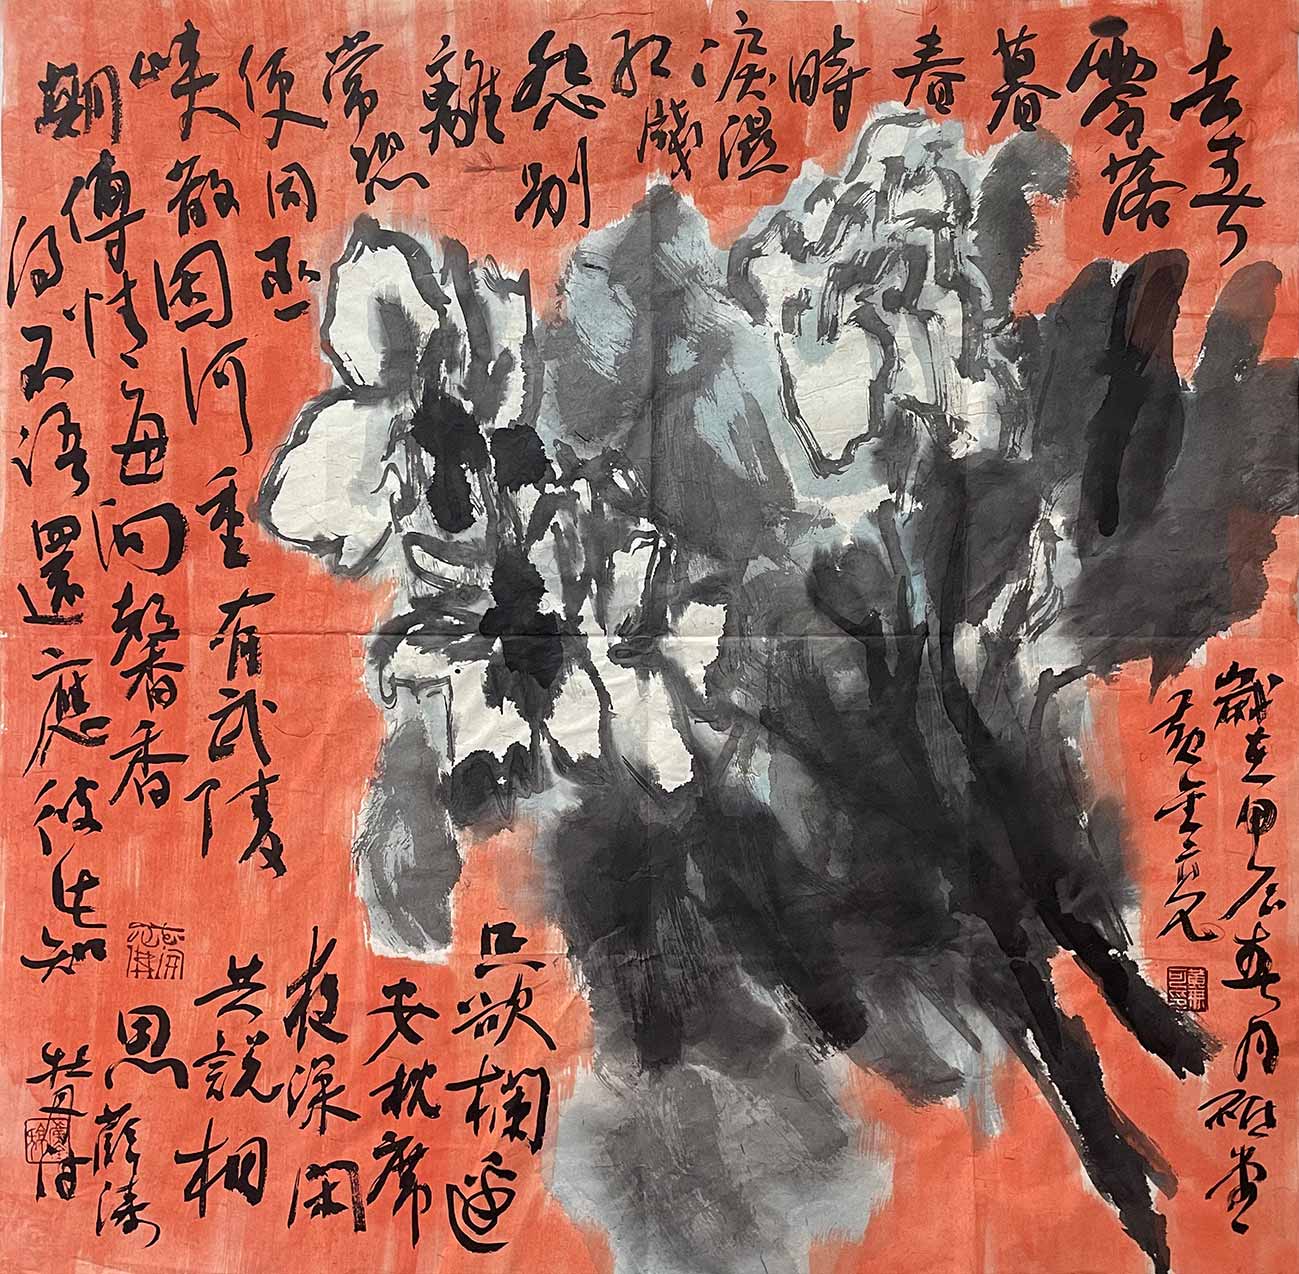 去春
零落
暮
春
時
淚濕
紅牋
怨別
離
常恐
便同巫
峽散因何重有武陵
期傳情每向馨香
得不語還應彼此知
只欲欄邊
安枕席
夜深閑
共說相
思 薛濤
牡丹詩
歲在甲辰春月 堂
黄金亮